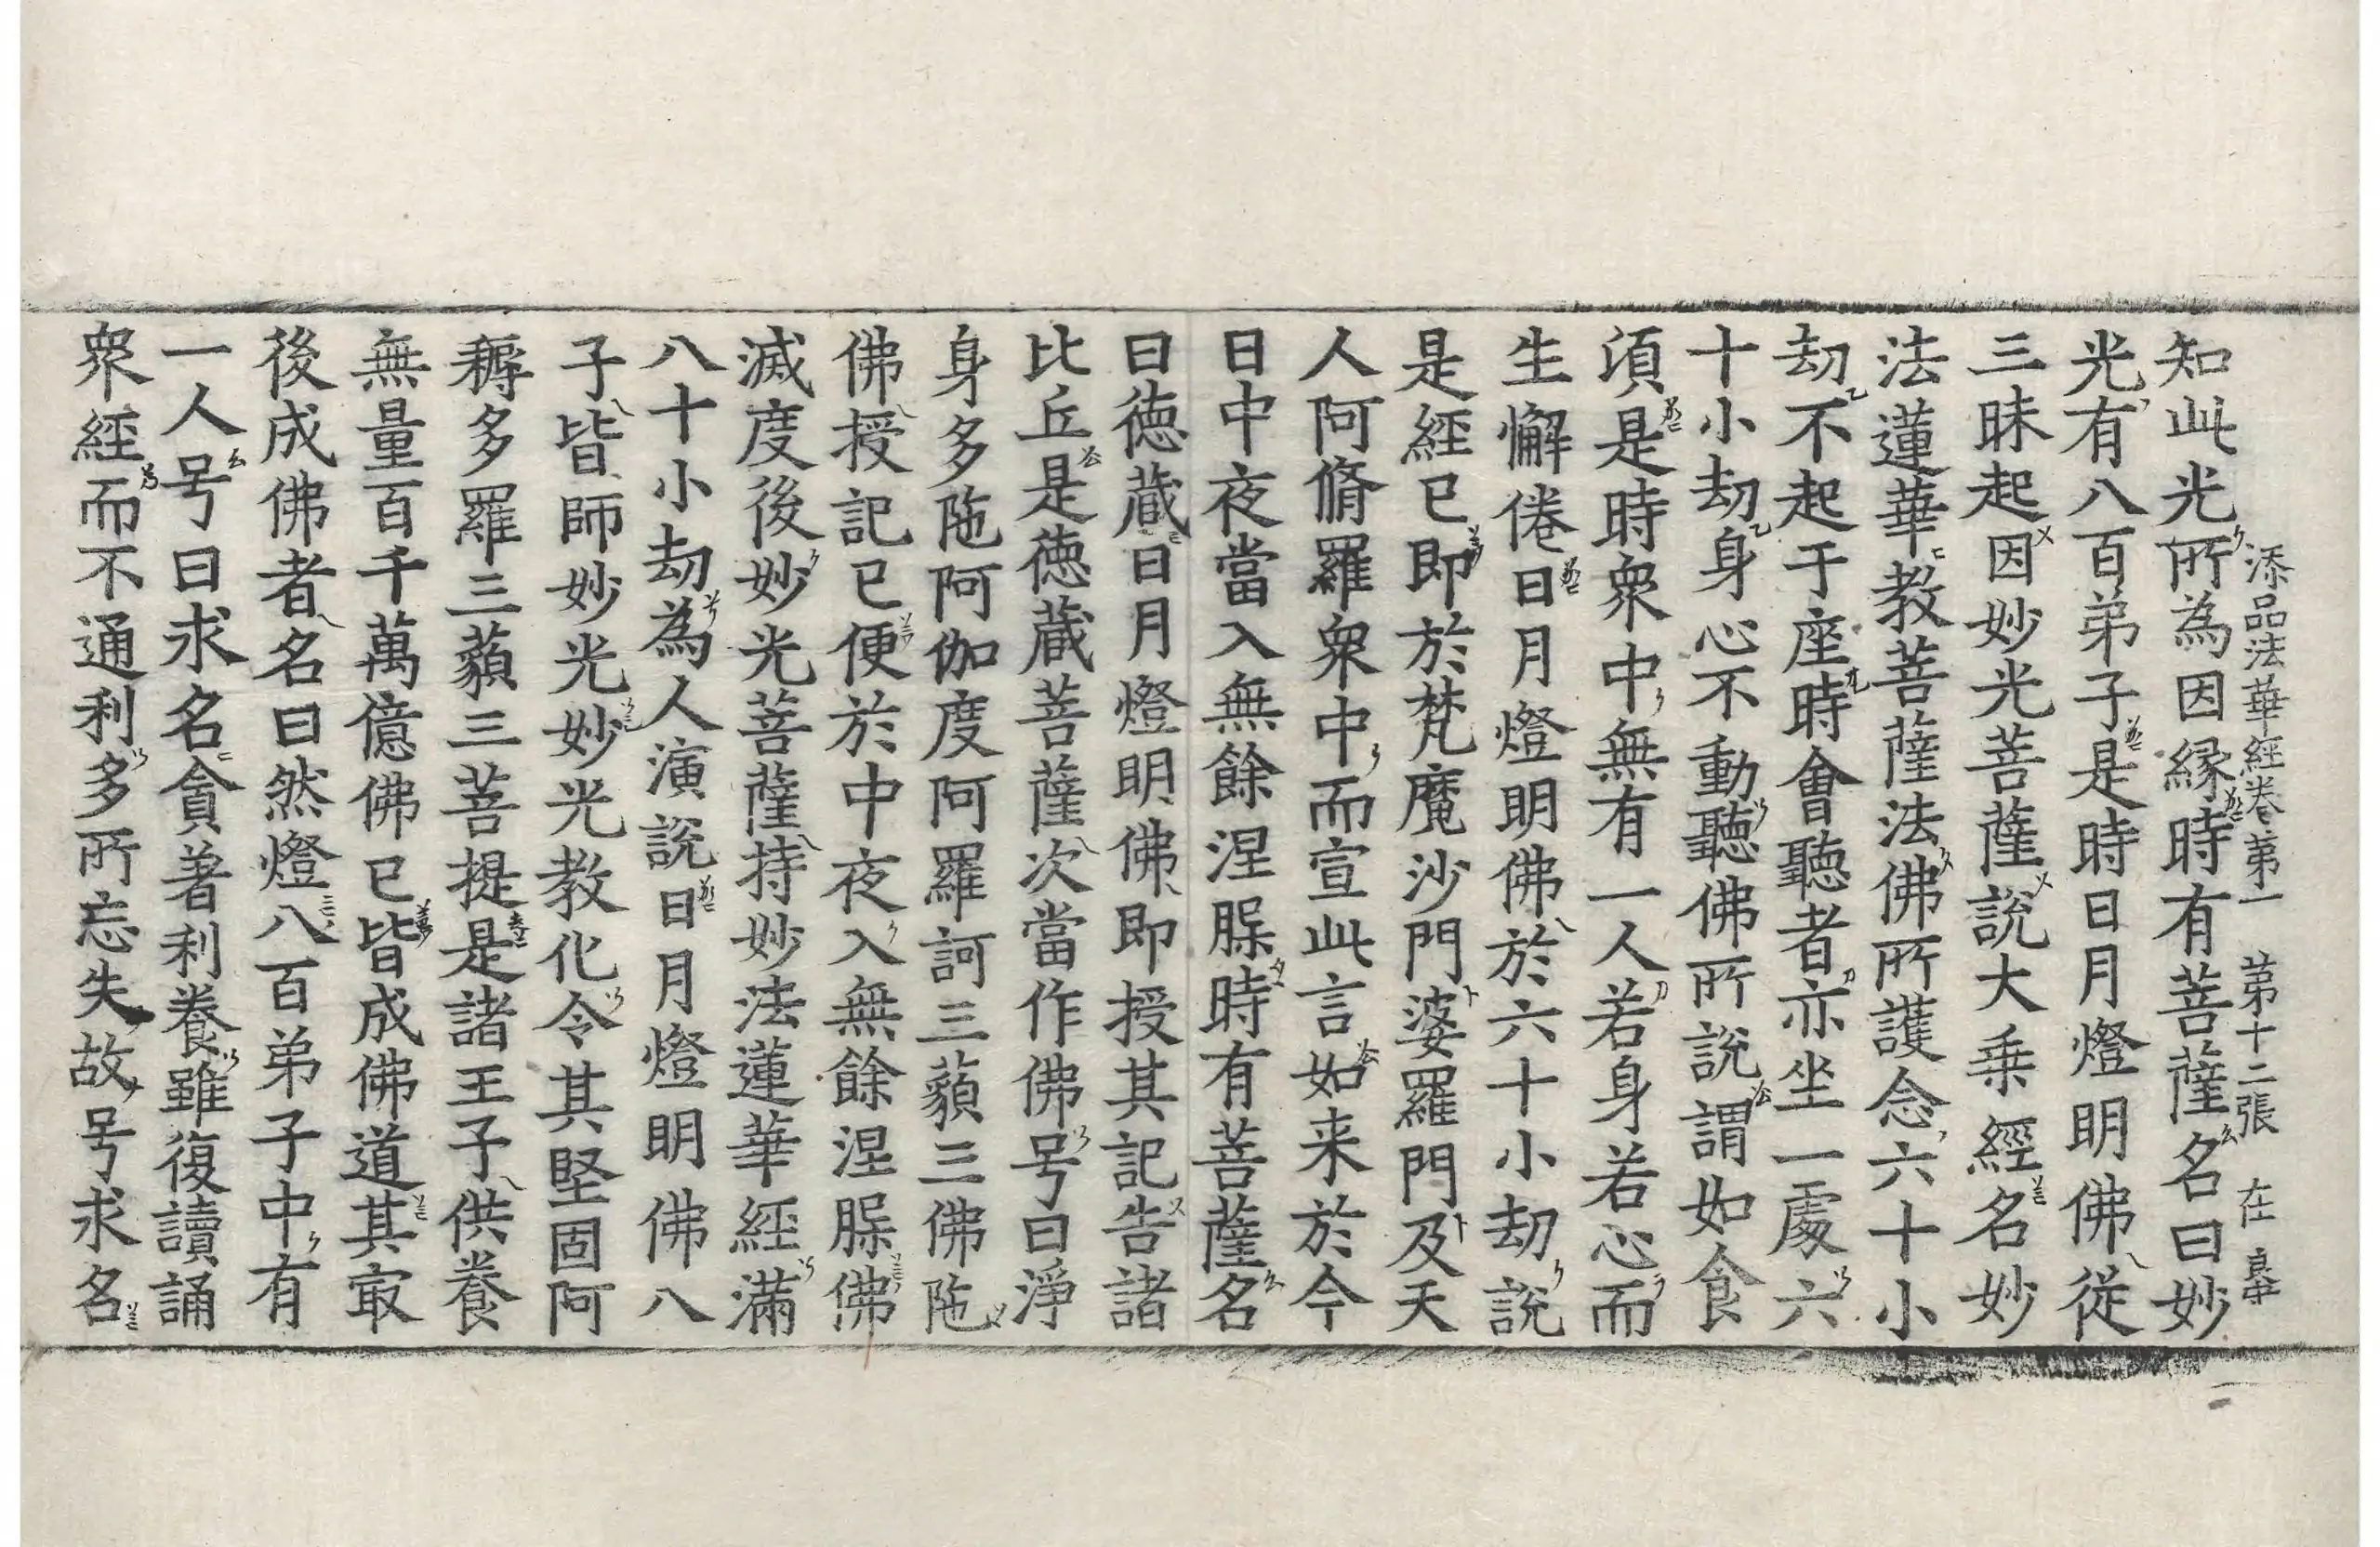 添品法華經卷第一 第十二張 在
知此光所為因縁時有菩薩名曰妙
光有八百弟子是時日月燈明佛従
三昧起因妙光菩薩說大乗經名妙
法蓮華教菩薩法佛所護念六十小
劫不起于座時會聽者亦坐一處六
十小劫身心不動聽佛所說謂如食
湏是時衆中無有一人若身若心而
生懈倦日月燈明佛於六十小劫說
是經已即於梵魔沙門婆羅門及天
人阿脩羅衆中而宣此言如来於今
日中夜當入無餘涅槃時有菩薩名
曰徳蔵日月燈明佛即授其記告諸
比丘是徳蔵菩薩次當作佛号曰淨
身多陁阿伽度阿羅訶三藐三佛陁
佛授記已便於中夜入無餘涅槃佛
滅度後妙光菩薩持妙法蓮華經滿
八十小劫為人演說日月燈明佛八
子皆師妙光妙光教化令其堅固阿
耨多羅三藐三菩提是諸王子供養
無量百千萬億佛已皆成佛道其㝡
後成佛者名曰然燈八百弟子中有
一人号曰求名貪著利養雖復讀誦
衆經而不通利多所忘失故号求名